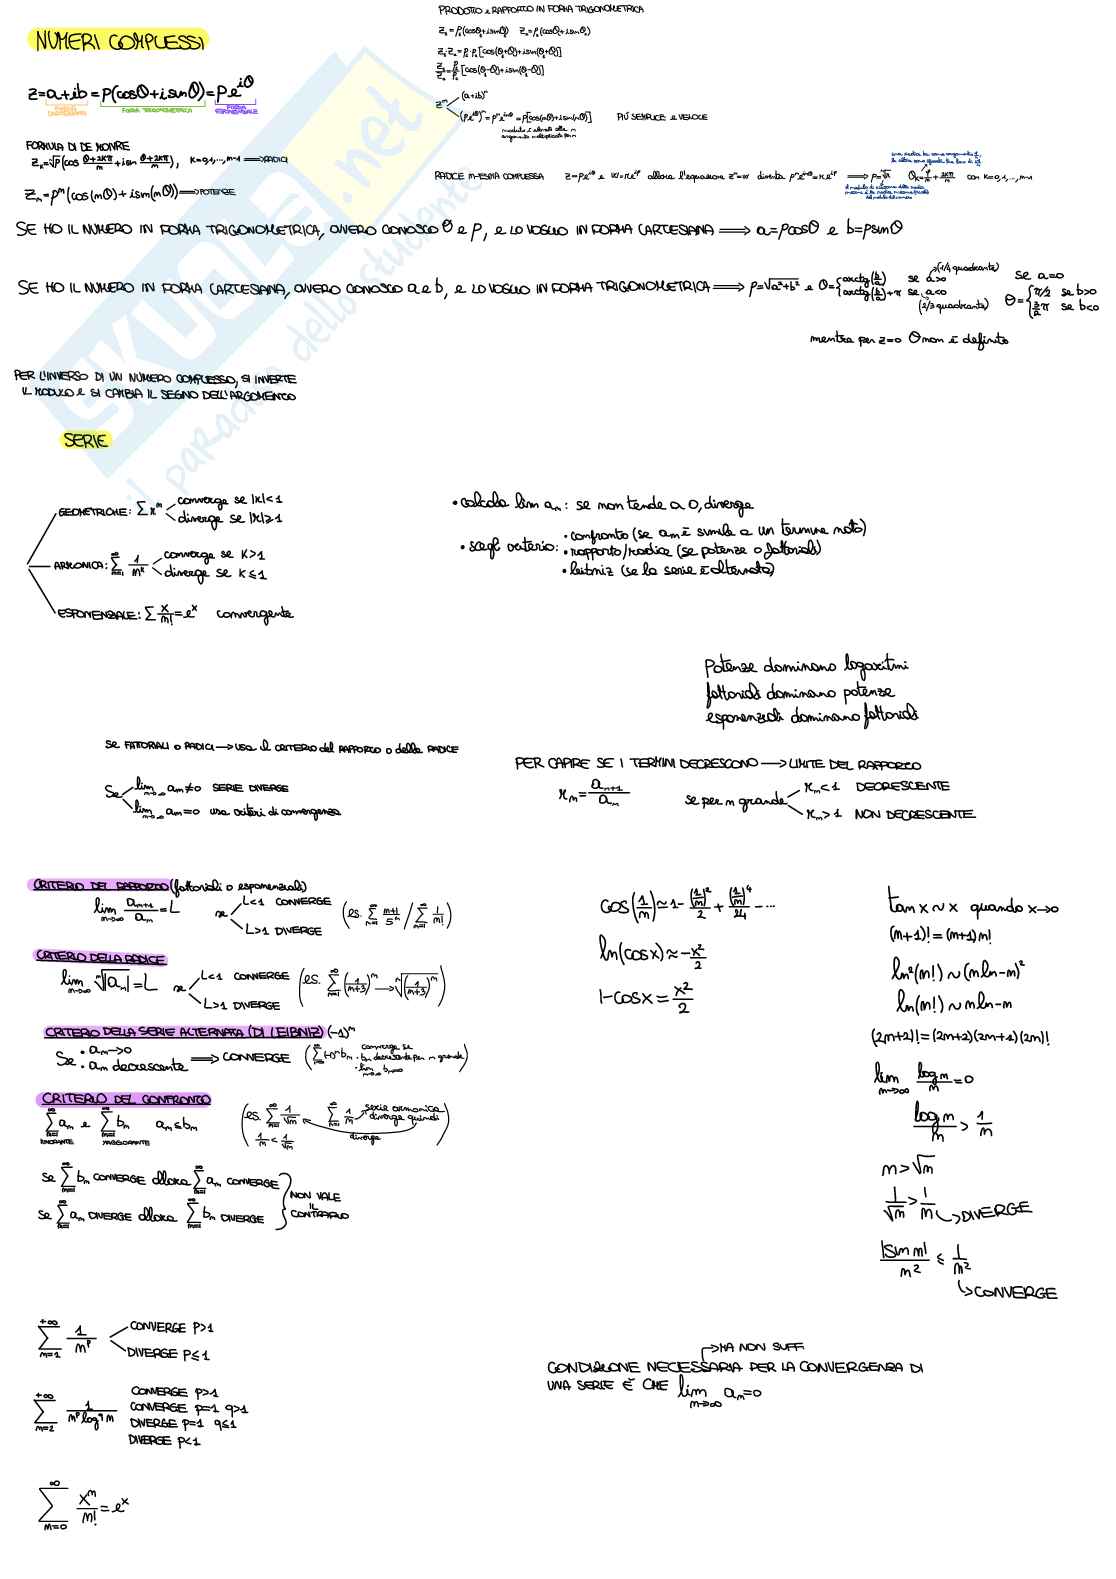 NUMERI COMPLESSI
z=a+ib=ρ(cosθ+isinθ)=ρe^{iθ}
FORMA TRIGONOMETRICA
FORMA ESPONENZIALE
FORMULA DI DE MOIVRE
z_k=ⁿ√ρ(cos (θ+2kπ)/n + isin (θ+2kπ)/n), k=0,1,...,n-1 ⟹RADICI
z_n=ρⁿ(cos(nθ)+isin(nθ))⟹POTENZE
PRODOTTO e RAPPORTO IN FORMA TRIGONOMETRICA
z₁=ρ₁(cosθ₁+isinθ₁) z₂=ρ₂(cosθ₂+isinθ₂)
z₁·z₂=ρ₁·ρ₂[cos(θ₁+θ₂)+isin(θ₁+θ₂)]
z₁/z₂=ρ₁/ρ₂[cos(θ₁-θ₂)+isin(θ₁-θ₂)]
zⁿ
(a+ib)ⁿ
(ρe^{iθ})ⁿ=ρⁿe^{inθ}=ρ[cos(nθ)+isin(nθ)] PIÙ SEMPLICE e VELOCE
modulo è elevato alla n
argomento moltiplicato per n
RADICE n-ESIMA COMPLESSA z=ρe^{iθ} e w=re^{iφ} allora l'equazione zⁿ=w diventa ρⁿe^{inθ}=re^{iφ} ⟹ ρ=ⁿ√r θ_k=φ/n+2kπ/n con k=0,1,...,n-1
SE HO IL NUMERO IN FORMA TRIGONOMETRICA, OVVERO CONOSCO θ e ρ, E LO VOGLIO IN FORMA CARTESIANA ⟹ a=ρcosθ e b=ρsinθ
SE HO IL NUMERO IN FORMA CARTESIANA, OVVERO CONOSCO a e b, E LO VOGLIO IN FORMA TRIGONOMETRICA ⟹ ρ=√a²+b² e θ={
arctg(b/a) se a>0 (1/4 quadrante)
arctg(b/a)+π se a<0 (2/3 quadrante)
se a=0
θ={ π/2 se b>0
3/2 π se b<0
mentre per z=0 θ non è definito
PER L'INVERSO DI UN NUMERO COMPLESSO, SI INVERTE
IL MODULO E SI CAMBIA IL SEGNO DELL'ARGOMENTO
SKUOLA.net
il paradiso dello studente
SERIE
GEOMETRICHE: Σxⁿ
converge se |x|<1
diverge se |x|≥1
ARMONICA: Σ 1/n^k
converge se k>1
diverge se k≤1
ESPONENZIALE: Σ x/n! = e^x convergente
• calcolo lim aₙ: se non tende a 0, diverge
• scegli criterio:
• confronto (se aₙ è simile a un termine noto)
• rapporto/radice (se potenze o fattoriali)
• leibniz (se la serie è alternata)
Potenze dominano logaritmi
fattoriali dominano potenze
esponenziali dominano fattoriali
SE FATTORIALI O RADICI→USA IL CRITERIO DEL RAPPORTO O DELLA RADICE
Se
lim n→∞ aₙ≠0 SERIE DIVERGE
lim n→∞ aₙ=0 usa criteri di convergenza
PER CAPIRE SE I TERMINI DECRESCONO → LIMITE DEL RAPPORTO
rₙ=aₙ₊₁/aₙ se per n grande
rₙ<1 DECRESCENTE
rₙ>1 NON DECRESCENTE
CRITERIO DEL RAPPORTO (fattoriali o esponenziali)
lim n→∞ aₙ₊₁/aₙ=L se
L<1 CONVERGE
L>1 DIVERGE
(es. Σ n=1 ∞ (n+1)/5ⁿ / Σ n=1 ∞ 1/n!)
CRITERIO DELLA RADICE
lim n→∞ ⁿ√|aₙ|=L se
L<1 CONVERGE
L>1 DIVERGE
(es. Σ n=1 ∞ (1/(n+3))ⁿ → ⁿ√(1/(n+3))ⁿ)
CRITERIO DELLA SERIE ALTERNATA (DI LEIBNIZ) (-1)ⁿ
Se • aₙ→0
• aₙ decrescente
⟹ CONVERGE
(Σ(-1)ⁿbₙ converge se
• bₙ decrescente per n grande
• lim n→∞ bₙ=0)
CRITERIO DEL CONFRONTO
Σ n=1 ∞ aₙ e Σ n=1 ∞ bₙ aₙ≤bₙ
MINORANTE MAGGIORANTE
(es. Σ n=1 ∞ 1/√n Σ n=1 ∞ 1/n → serie armonica diverge quindi
1/n < 1/√n diverge)
se Σ n=1 ∞ bₙ CONVERGE allora Σ n=1 ∞ aₙ CONVERGE
se Σ n=1 ∞ aₙ DIVERGE allora Σ n=1 ∞ bₙ DIVERGE
NON VALE
IL
CONTRARIO
cos(1/n)≃1-(1/n)²/2+(1/n)⁴/24-...
ln(cosx)≈-x²/2
1-cosx=x²/2
tanx∼x quando x→0
(n+1)!=(n+1)n!
ln²(n!)∼(nln-n)²
ln(n!)∼nln-n
(2n+2)!=(2n+2)(2n+1)(2n)!
lim n→∞ logn/n=0
logn/n > 1/n
n>√n
1/√n > 1/n ↳DIVERGE
|sin n|/n² ≤ 1/n²
↳CONVERGE
Σ n=1 +∞ 1/nᵖ
CONVERGE p>1
DIVERGE p≤1
Σ n=2 +∞ 1/(nᵖ log^q n)
CONVERGE p>1
CONVERGE p=1 q>1
DIVERGE p=1 q≤1
DIVERGE p<1
Σ n=0 ∞ xⁿ/n! = e^x
→MA NON SUFF
CONDIZIONE NECESSARIA PER LA CONVERGENZA DI
UNA SERIE È CHE lim n→∞ aₙ=0